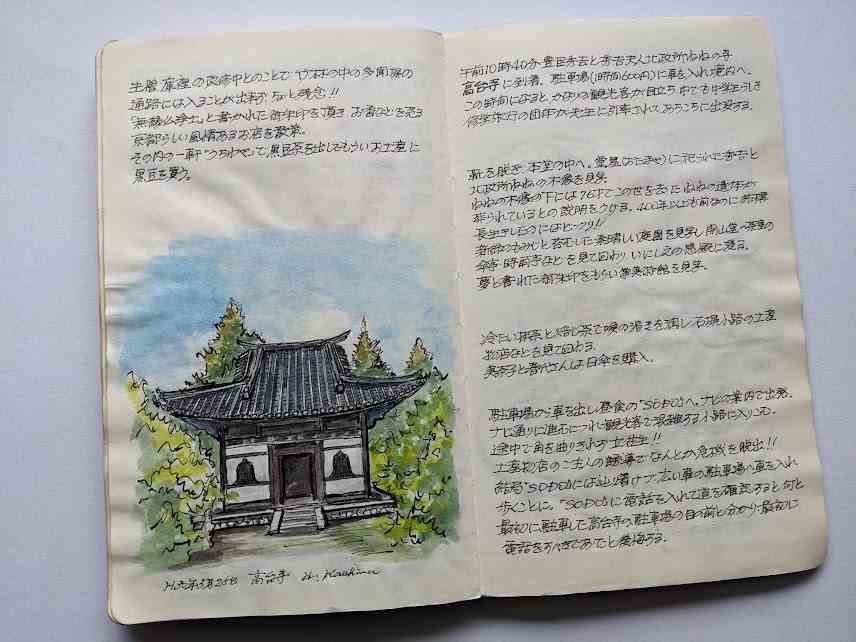 土塀 庫裡の改修中とのことで 竹林の中の多聞 の
通路には入ることが出来ず ちょっと残念!!
と書かれた御朱印を頂き お香などを売る
京都らしい風情あるお店を散策。
その内の一軒 で 黒豆茶を出してもらい お土産に
黒豆を買う。
高台寺
午前10時40分 豊臣秀吉と秀吉夫人北政所ねねの寺
高台寺に到着。駐車場(1時間600円)に車を入れ境内へ。
この時間になると かなりの観光客が目立ち 中でも中学生らしき
修学旅行の団体が先生に引率されて あちこちに出没する。
靴を脱ぎ 本堂の中へ。霊屋(おたまや)に祀られた秀吉と
北政所ねねの木像を見学。
ねねの木像の下には76才でこの世を去った ねねの遺体が
葬られているとの説明をうける。400年以上も前なのに
長生きしたのにはビックリ!!
新緑のもみじと苔むした素晴しい庭園を見学し 開山堂 茶室の
傘亭・時雨亭などを見て回わり いにしえの思いに浸る。
夢と書れた御朱印をもらい 掌美術館を見学。
冷たい抹茶と ほうじ茶で喉の渇きを潤し 石塀小路の土産
物店などを見て回わる。
さんは日傘を購入。
駐車場から車を出し 昼食の"SODOH"へ。ナビの案内で出発。
ナビ通りに進むにつれ 観光客で混雑する小路に入り込み
途中で角を曲りきれず 立往生!!
土産物店のご主人の誘導で なんとか危機を脱出!!
結局"SODOH"には辿り着けず 広い 車の駐車場へ車を入れ
歩くことに。"SODOH"に電話を入れて道を確認すると 何と
最初に駐車した高台寺の駐車場の目の前と分かり 最初に
電話をすべきであったと後悔する。